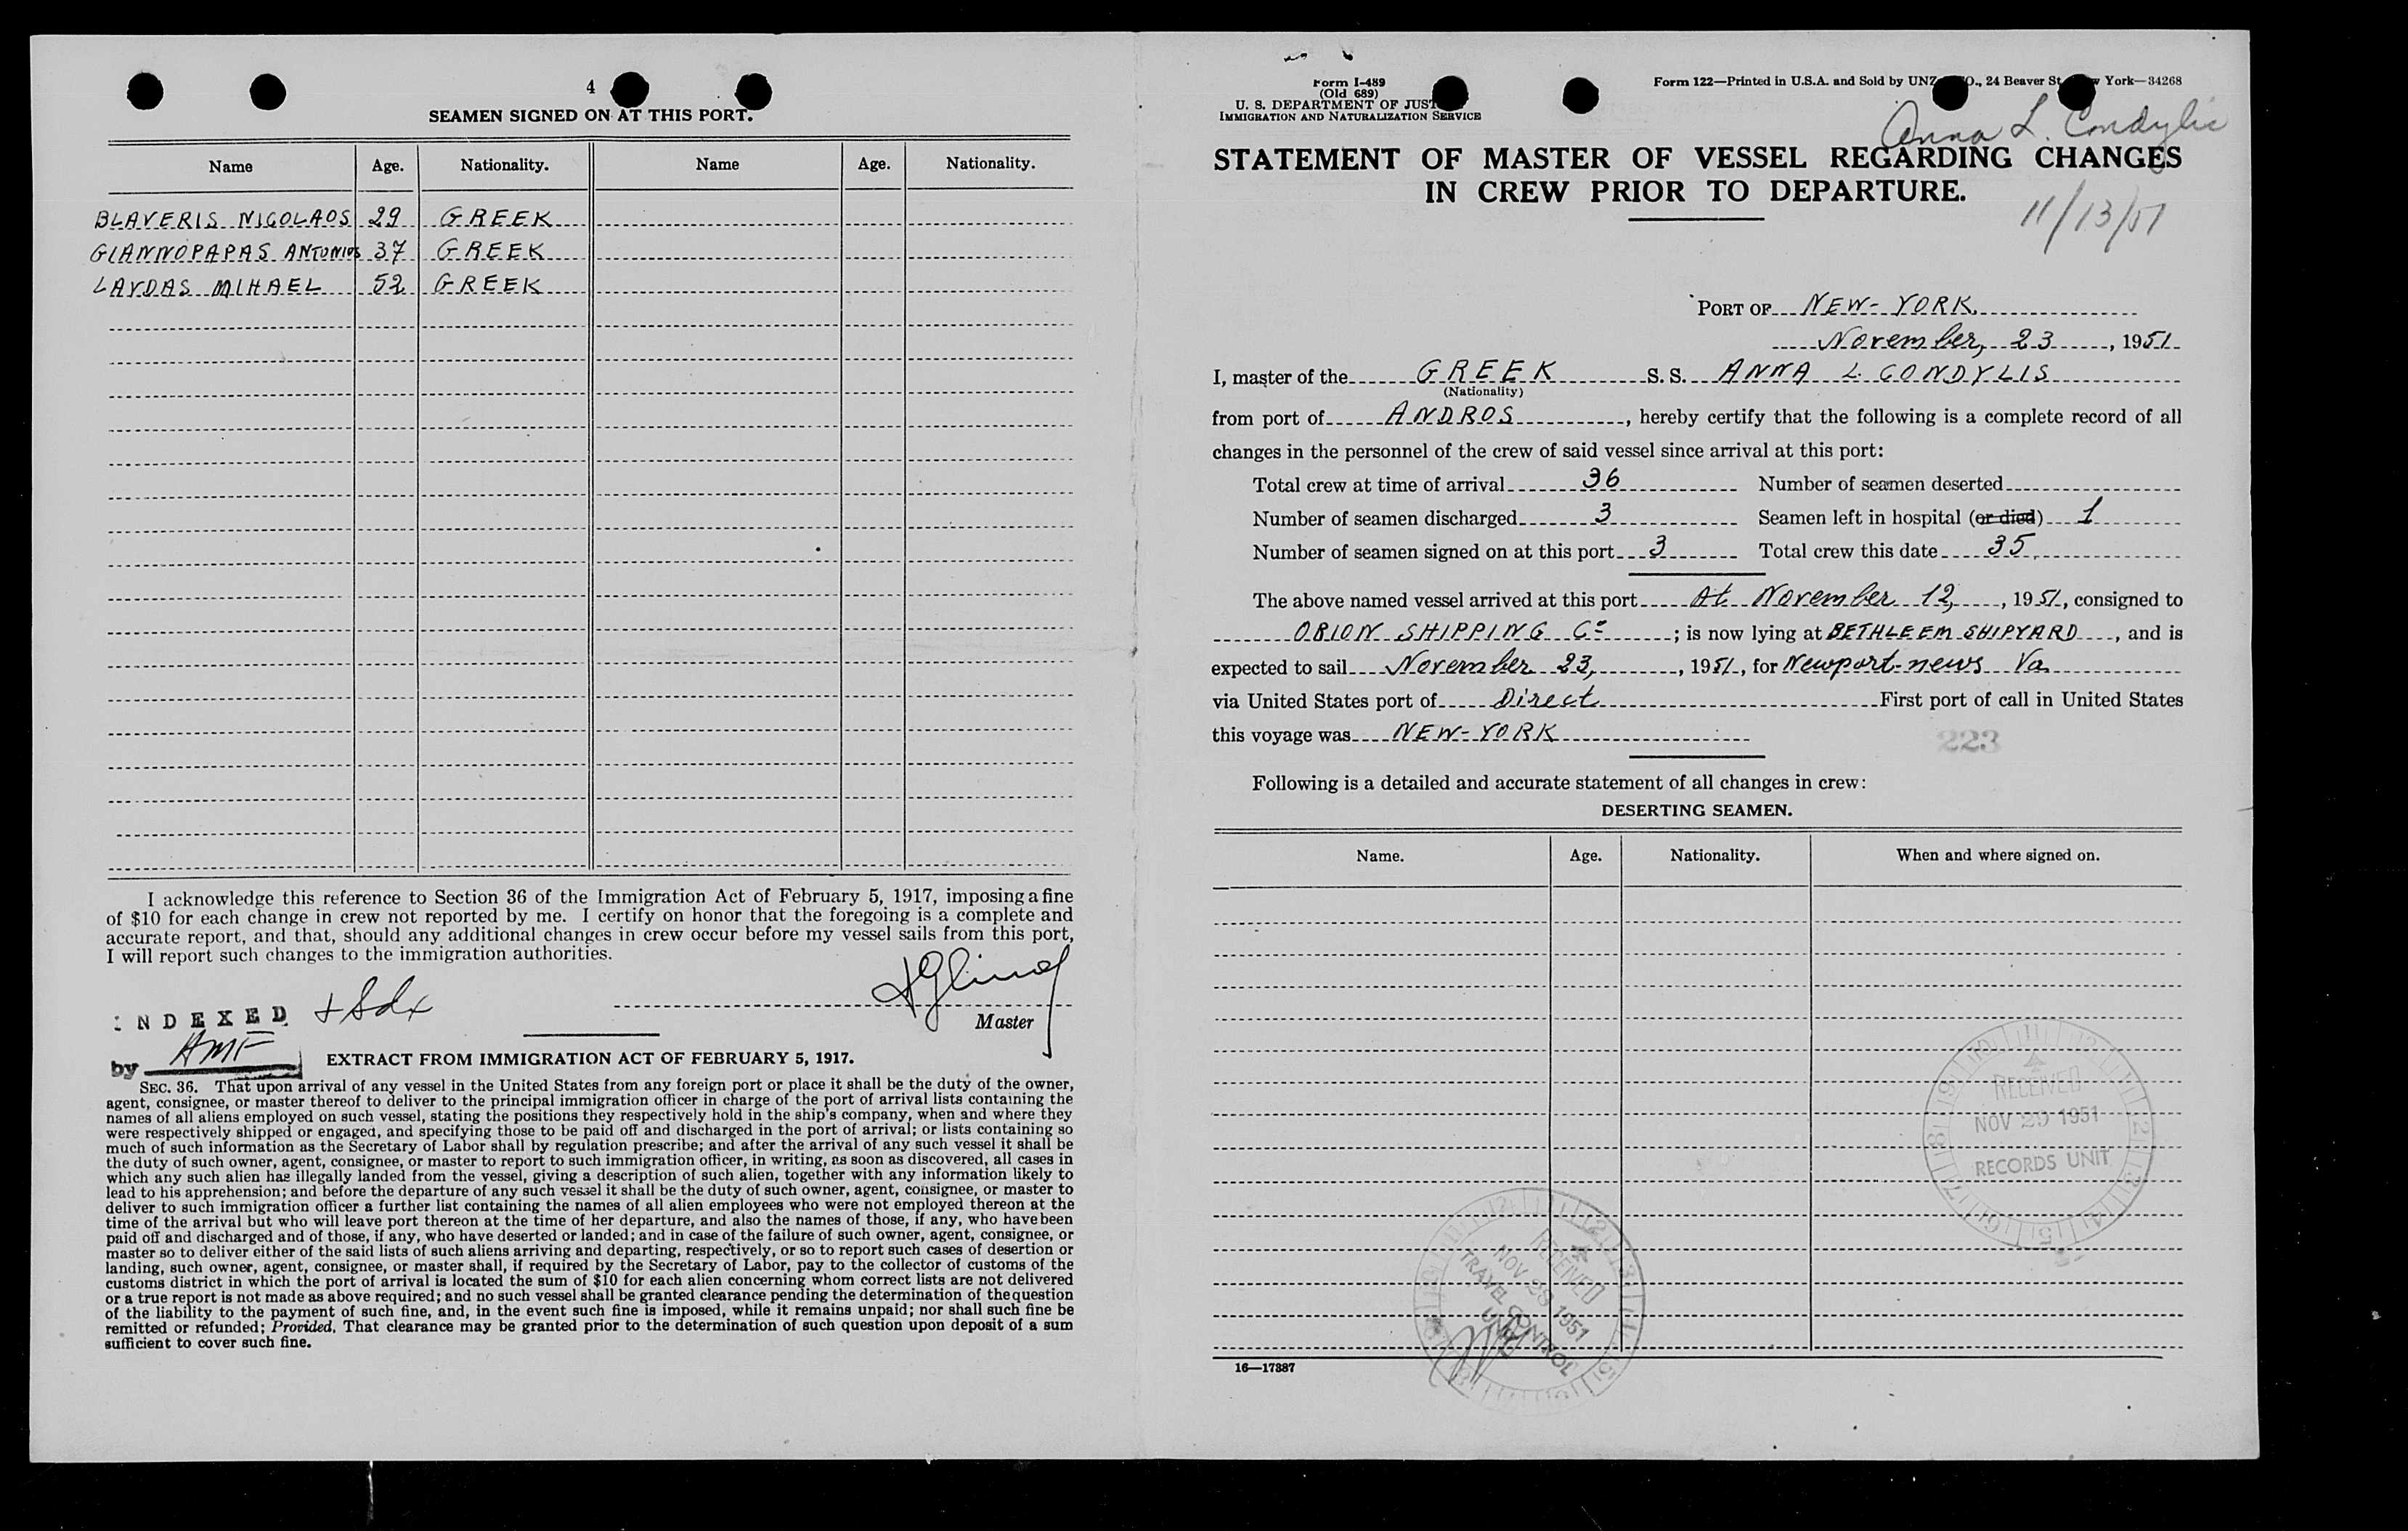 4
SEAMEN SIGNED ON AT THIS PORT.
Name Age. Nationality. Name Age. Nationality.
BLAVERIS NICOLAOS 29 GREEK
GIANNOPAPAS ANTONIOS 37 GREEK
LAYDAS MIHAEL 52 GREEK
I acknowledge this reference to Section 36 of the Immigration Act of February 5, 1917, imposing a fine
of $10 for each change in crew not reported by me. I certify on honor that the foregoing is a complete and
accurate report, and that, should any additional changes in crew occur before my vessel sails from this port,
I will report such changes to the immigration authorities.
Master
INDEXED
by AMF
EXTRACT FROM IMMIGRATION ACT OF FEBRUARY 5, 1917.
SEC. 36. That upon arrival of any vessel in the United States from any foreign port or place it shall be the duty of the owner,
agent, consignee, or master thereof to deliver to the principal immigration officer in charge of the port of arrival lists containing the
names of all aliens employed on such vessel, stating the positions they respectively hold in the ship's company, when and where they
were respectively shipped or engaged, and specifying those to be paid off and discharged in the port of arrival; or lists containing so
much of such information as the Secretary of Labor shall by regulation prescribe; and after the arrival of any such vessel it shall be
the duty of such owner, agent, consignee, or master to report to such immigration officer, in writing, as soon as discovered, all cases in
which any such alien has illegally landed from the vessel, giving a description of such alien, together with any information likely to
lead to his apprehension; and before the departure of any such vessel it shall be the duty of such owner, agent, consignee, or master to
deliver to such immigration officer a further list containing the names of all alien employees who were not employed thereon at the
time of the arrival but who will leave port thereon at the time of her departure, and also the names of those, if any, who have been
paid off and discharged and of those, if any, who have deserted or landed; and in case of the failure of such owner, agent, consignee, or
master so to deliver either of the said lists of such aliens arriving and departing, respectively, or so to report such cases of desertion or
landing, such owner, agent, consignee, or master shall, if required by the Secretary of Labor, pay to the collector of customs of the
customs district in which the port of arrival is located the sum of $10 for each alien concerning whom correct lists are not delivered
or a true report is not made as above required; and no such vessel shall be granted clearance pending the determination of the question
of the liability to the payment of such fine, and, in the event such fine is imposed, while it remains unpaid; nor shall such fine be
remitted or refunded; Provided, That clearance may be granted prior to the determination of such question upon deposit of a sum
sufficient to cover such fine.
Form I-489
(Old 689)
U. S. DEPARTMENT OF JUST
IMMIGRATION AND NATURALIZATION SERVICE
Form 122—Printed in U.S.A. and Sold by UNZ O., 24 Beaver St York—34268
Anna L. Condylis
STATEMENT OF MASTER OF VESSEL REGARDING CHANGES
IN CREW PRIOR TO DEPARTURE.
11/13/51
PORT OF NEW-YORK
November, 23, 1951
I, master of the GREEK S. S. ANNA L. CONDYLIS
(Nationality)
from port of ANDROS, hereby certify that the following is a complete record of all
changes in the personnel of the crew of said vessel since arrival at this port:
Total crew at time of arrival 36 Number of seamen deserted
Number of seamen discharged 3 Seamen left in hospital (or died) 1
Number of seamen signed on at this port 3 Total crew this date 35
The above named vessel arrived at this port At November 12, 1951, consigned to
ORION SHIPPING Co; is now lying at BETHLEEM SHIPYARD, and is
expected to sail November 23, 1951, for Newport-news Va
via United States port of Direct First port of call in United States
this voyage was NEW-YORK
223
Following is a detailed and accurate statement of all changes in crew:
DESERTING SEAMEN.
Name. Age. Nationality. When and where signed on.
RECEIVED
NOV 29 1951
RECORDS UNIT
RECEIVED
NOV 28 1951
TRAVEL CONTROL
UNIT
16—17387